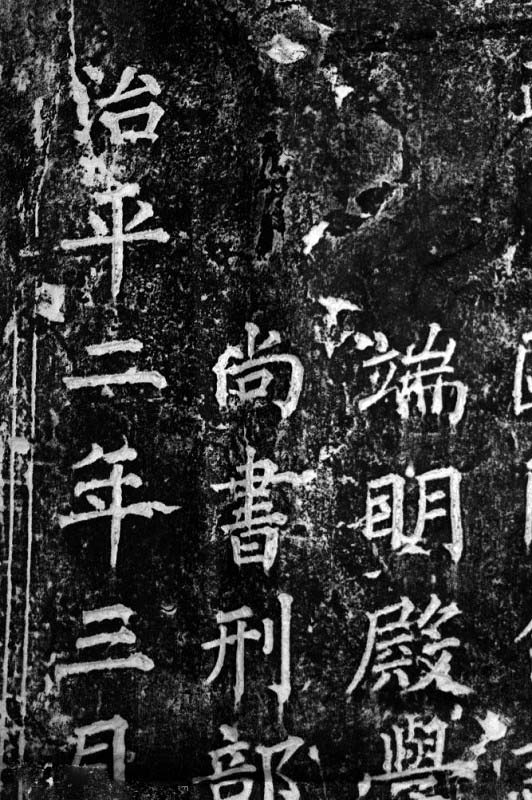 端明殿學
尚書刑部
治平二年三月